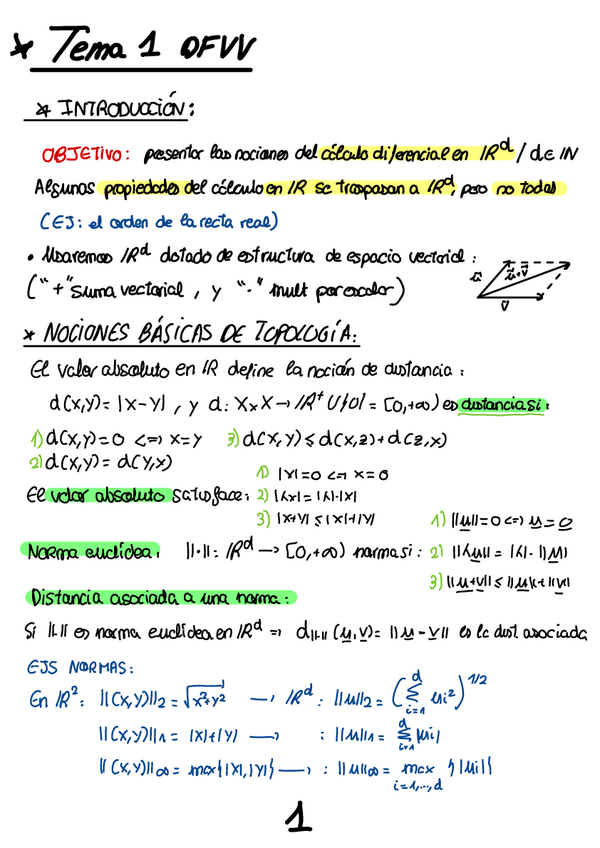 * Tema 1 DFVV
* INTRODUCCIÓN:
OBJETIVO: presentar las nociones del cálculo diferencial en IR^d / d∈IN
Algunas propiedades del cálculo en IR se traspasan a IR^d, pero no todas
(EJ: el orden de la recta real)
• Usaremos IR^d dotado de estructura de espacio vectorial:
("+" suma vectorial, y "·" mult por escalar)
u⃗ u⃗+v⃗ v⃗
* NOCIONES BÁSICAS DE TOPOLOGÍA:
El valor absoluto en IR define la noción de distancia:
d(x,y)= |x-y|, y d: X×X→IR⁺∪{0} = [0,+∞) es distancia si:
1) d(x,y)=0 <=> x=y 3) d(x,y) ≤ d(x,z)+d(z,x)
2) d(x,y)= d(y,x)
El valor absoluto satisface: 1) |x|=0 <=> x=0
2) |λx| = |λ|·|x|
3) |x+y| ≤ |x|+|y|
Norma euclídea: ||·||: IR^d → [0,+∞) norma si: 1) ||u||=0 <=> u=0
2) ||λu|| = |λ|·||u||
3) ||u+v|| ≤ ||u||+||v||
Distancia asociada a una norma:
Si ||·|| es norma euclídea en IR^d => d_||·|| (u,v)= ||u-v|| es la dist asociada
EJS NORMAS:
En IR²: ||(x,y)||₂ = √x²+y² → IR^d: ||u||₂ = (∑_{i=1}^d ui²)^1/2
||(x,y)||₁ = |x|+|y| → : ||u||₁ = ∑_{i=1}^d |ui|
||(x,y)||∞ = max{|x|,|y|} → : ||u||∞ = max_{i=1,..,d} {|ui|}
1